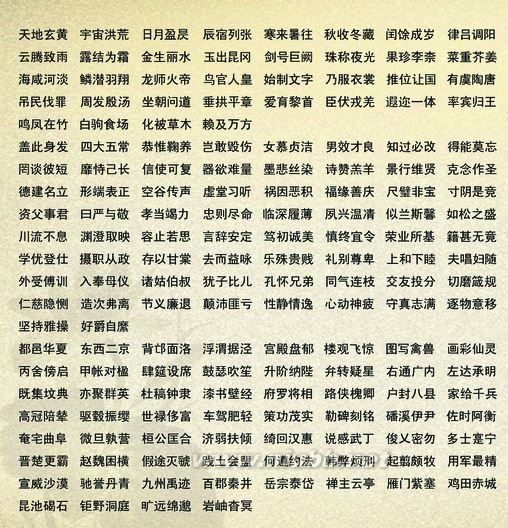 天地玄黄 宇宙洪荒 日月盈昃 辰宿列张 寒来暑往 秋收冬藏 闰馀成岁 律吕调阳
云腾致雨 露结为霜 金生丽水 玉出昆冈 剑号巨阙 珠称夜光 果珍李柰 菜重芥姜
海咸河淡 鳞潜羽翔 龙师火帝 鸟官人皇 始制文字 乃服衣裳 推位让国 有虞陶唐
吊民伐罪 周发殷汤 坐朝问道 垂拱平章 爱育黎首 臣伏戎羌 遐迩一体 率宾归王
鸣凤在竹 白驹食场 化被草木 赖及万方
盖此身发 四大五常 恭惟鞠养 岂敢毁伤 女慕贞洁 男效才良 知过必改 得能莫忘
罔谈彼短 靡恃己长 信使可复 器欲难量 墨悲丝染 诗赞羔羊 景行维贤 克念作圣
德建名立 形端表正 空谷传声 虚堂习听 祸因恶积 福缘善庆 尺璧非宝 寸阴是竞
资父事君 曰严与敬 孝当竭力 忠则尽命 临深履薄 夙兴温凊 似兰斯馨 如松之盛
川流不息 渊澄取映 容止若思 言辞安定 笃初诚美 慎终宜令 荣业所基 籍甚无竟
学优登仕 摄职从政 存以甘棠 去而益咏 乐殊贵贱 礼别尊卑 上和下睦 夫唱妇随
外受傅训 入奉母仪 诸姑伯叔 犹子比儿 孔怀兄弟 同气连枝 交友投分 切磨箴规
仁慈隐恻 造次弗离 节义廉退 颠沛匪亏 性静情逸 心动神疲 守真志满 逐物意移
坚持雅操 好爵自縻
都邑华夏 东西二京 背邙面洛 浮渭据泾 宫殿盘郁 楼观飞惊 图写禽兽 画彩仙灵
丙舍傍启 甲帐对楹 肆筵设席 鼓瑟吹笙 升阶纳陛 弁转疑星 右通广内 左达承明
既集坟典 亦聚群英 杜稿钟隶 漆书壁经 府罗将相 路侠槐卿 户封八县 家给千兵
高冠陪辇 驱毂振缨 世禄侈富 车驾肥轻 策功茂实 勒碑刻铭 磻溪伊尹 佐时阿衡
奄宅曲阜 微旦孰营 桓公匡合 济弱扶倾 绮回汉惠 说感武丁 俊乂密勿 多士寔宁
晋楚更霸 赵魏困横 假途灭虢 践土会盟 何遵约法 韩弊烦刑 起翦颇牧 用军最精
宣威沙漠 驰誉丹青 九州禹迹 百郡秦并 岳宗泰岱 禅主云亭 雁门紫塞 鸡田赤城
昆池碣石 钜野洞庭 旷远绵邈 岩岫杳冥